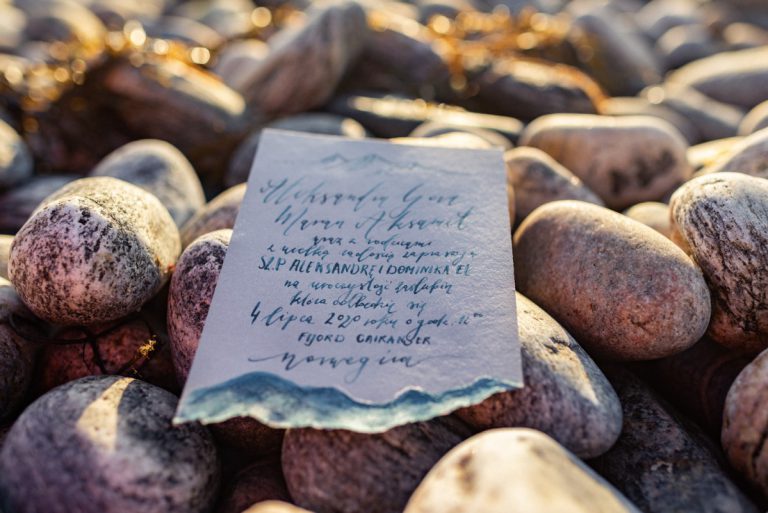 Aleksandra Gora
Marcin Aksamit
wraz z rodzicami
z wielką radością zapraszają
SZ.P ALEKSANDRĘ I DOMINIKA EL
na uroczystość zaślubin
która odbędzie się
4 lipca 2020 roku o godz.
FIORD
Norwegia